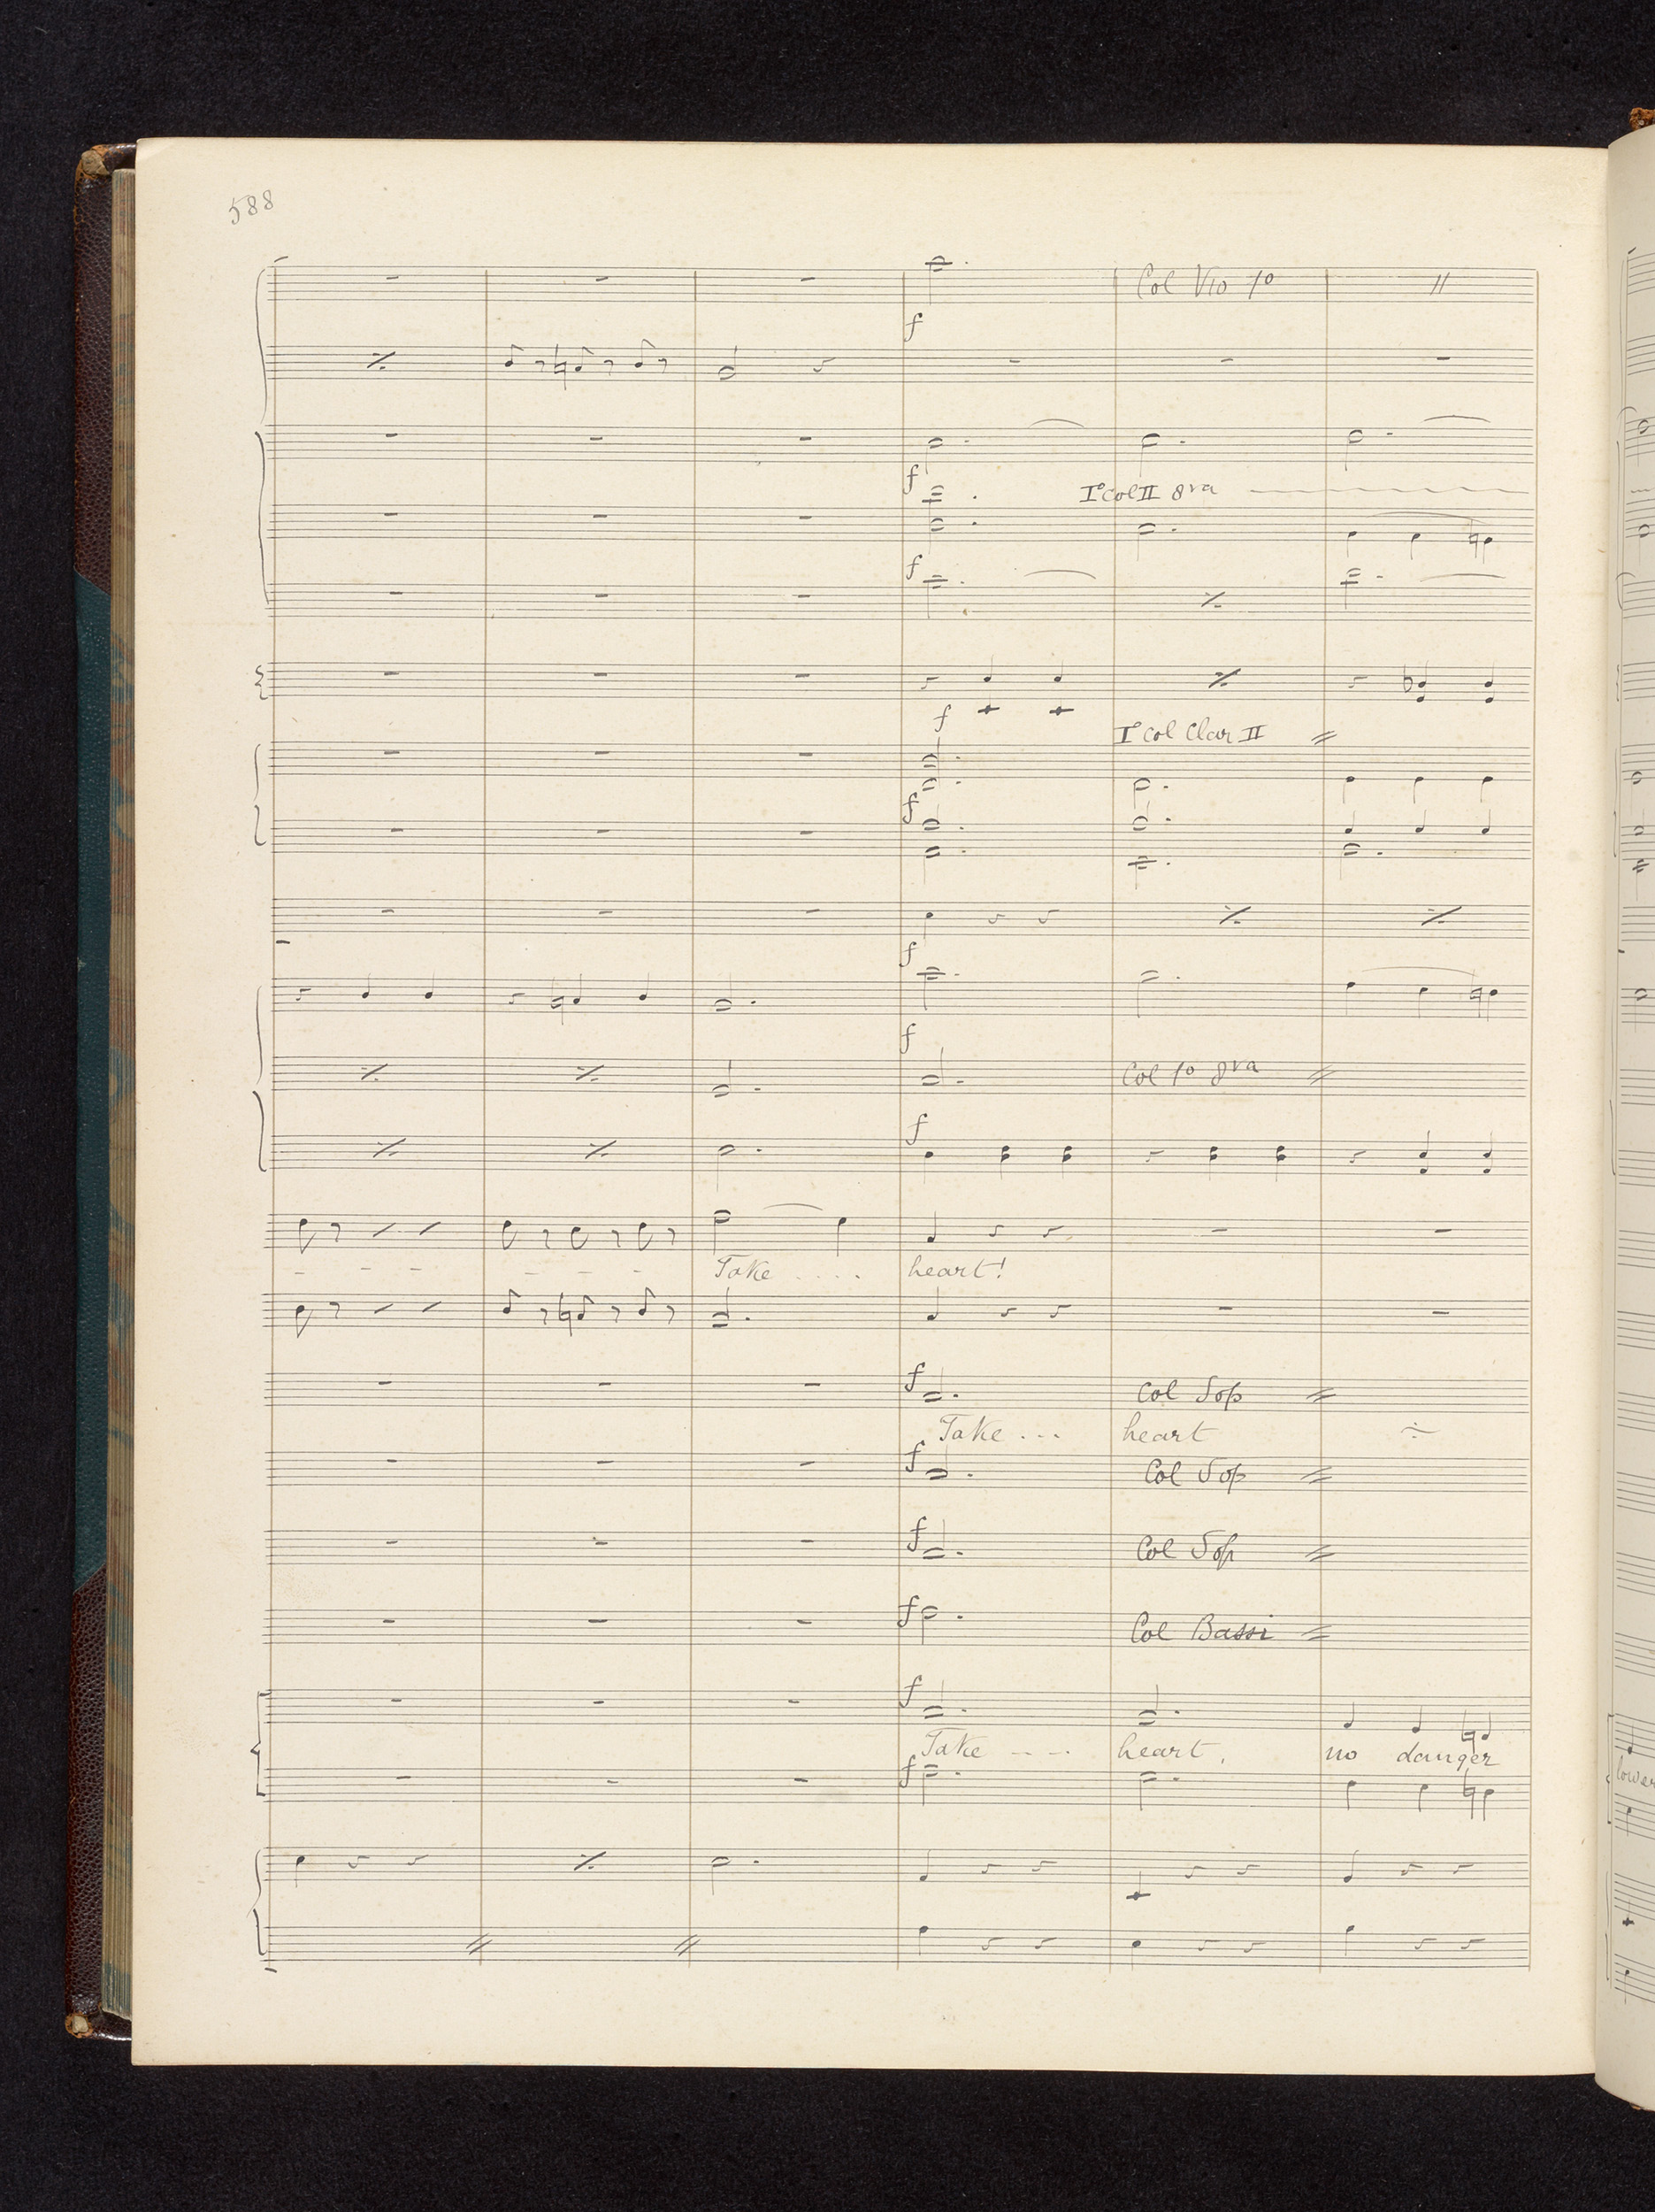 588
Col Vio 1o
f
f
Io Col II 8va
f
f
Io Col Clar II
f
f
f
Col 1o 8va
f
Take .... heart!
f Col Sop
Take ... heart
f Col Sop
f Col Sop
f Col Bassi
f
Take --- heart, no danger
f
lower